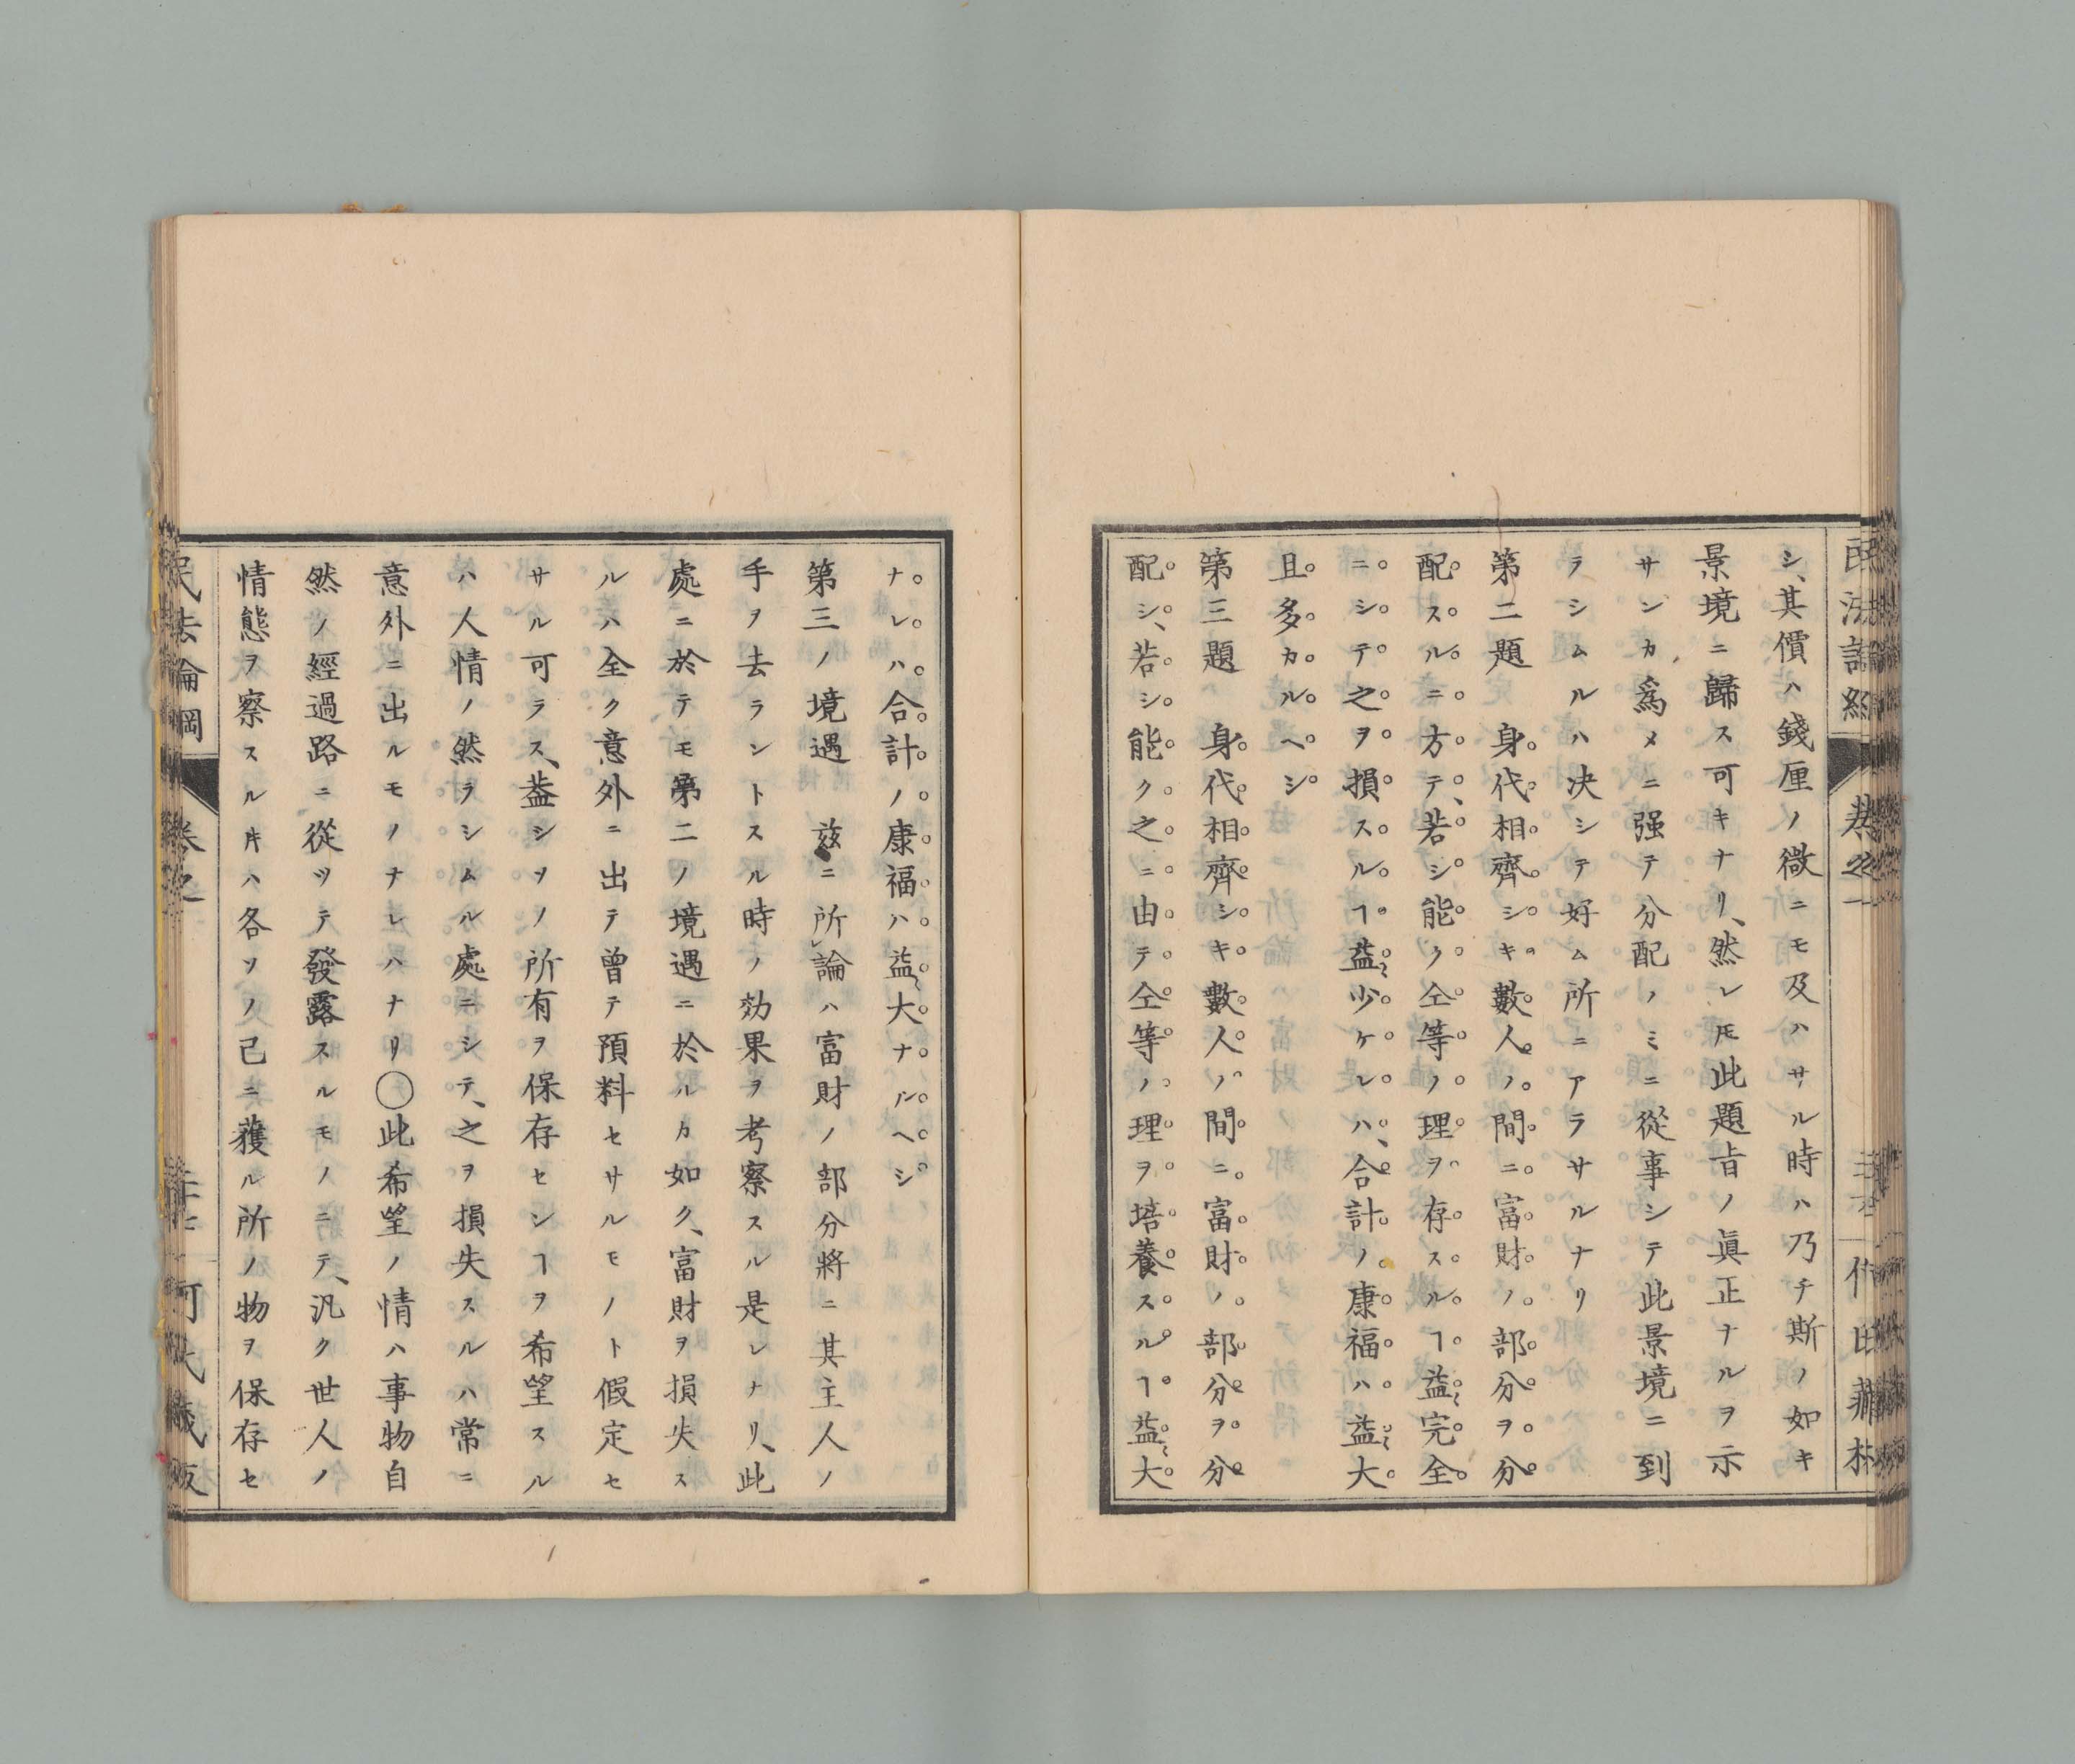 シ、其價ハ錢厘ノ微ニモ及ハサル時ハ乃チ斯ノ如キ
景境ニ歸ス可キナリ、然レ𪜈此題旨ノ眞正ナルヲ示
サンカ爲メニ强テ分配ノミニ從事シテ此景境ニ到
ラシムルハ决シテ好ム所ニアラサルナリ
第二題 身代相齊シキ數人ノ間ニ富財ノ部分ヲ分
配スルニ方テ、若シ能ク仝等ノ理ヲ存スルヿ益〻完全
ニシテ之ヲ損スルヿ益〻少ケレハ、合計ノ康福ハ益〻大
且多カルヘシ
第三題 身代相齊シキ數人ノ間ニ富財ノ部分ヲ分
配シ、若シ能ク之ニ由テ仝等ノ理ヲ培養スルヿ益〻大
ナレハ合計ノ康福ハ益〻大ナルヘシ
第三ノ境遇 茲ニ所論ハ富財ノ部分將ニ其主人ノ
手ヲ去ラントスル時ノ効果ヲ考察スル是レナリ、此
處ニ於テモ第二ノ境遇ニ於ルカ如ク、富財ヲ損失ス
ルハ全ク意外ニ出テ曾テ預料セサルモノト假定セ
サル可ラス、葢シソノ所有ヲ保存センヿヲ希望スル
ハ人情ノ然ラシムル處ニシテ、之ヲ損失スルハ常ニ
意外ニ出ルモノナレハナリ○此希望ノ情ハ事物自
然ノ經過路ニ從ツテ發露スルモノニテ、汎ク世人ノ
情態ヲ察スル𪜈ハ各ソノ己ニ獲ル所ノ物ヲ保存セ
民法論綱 卷之一 何氏藏版